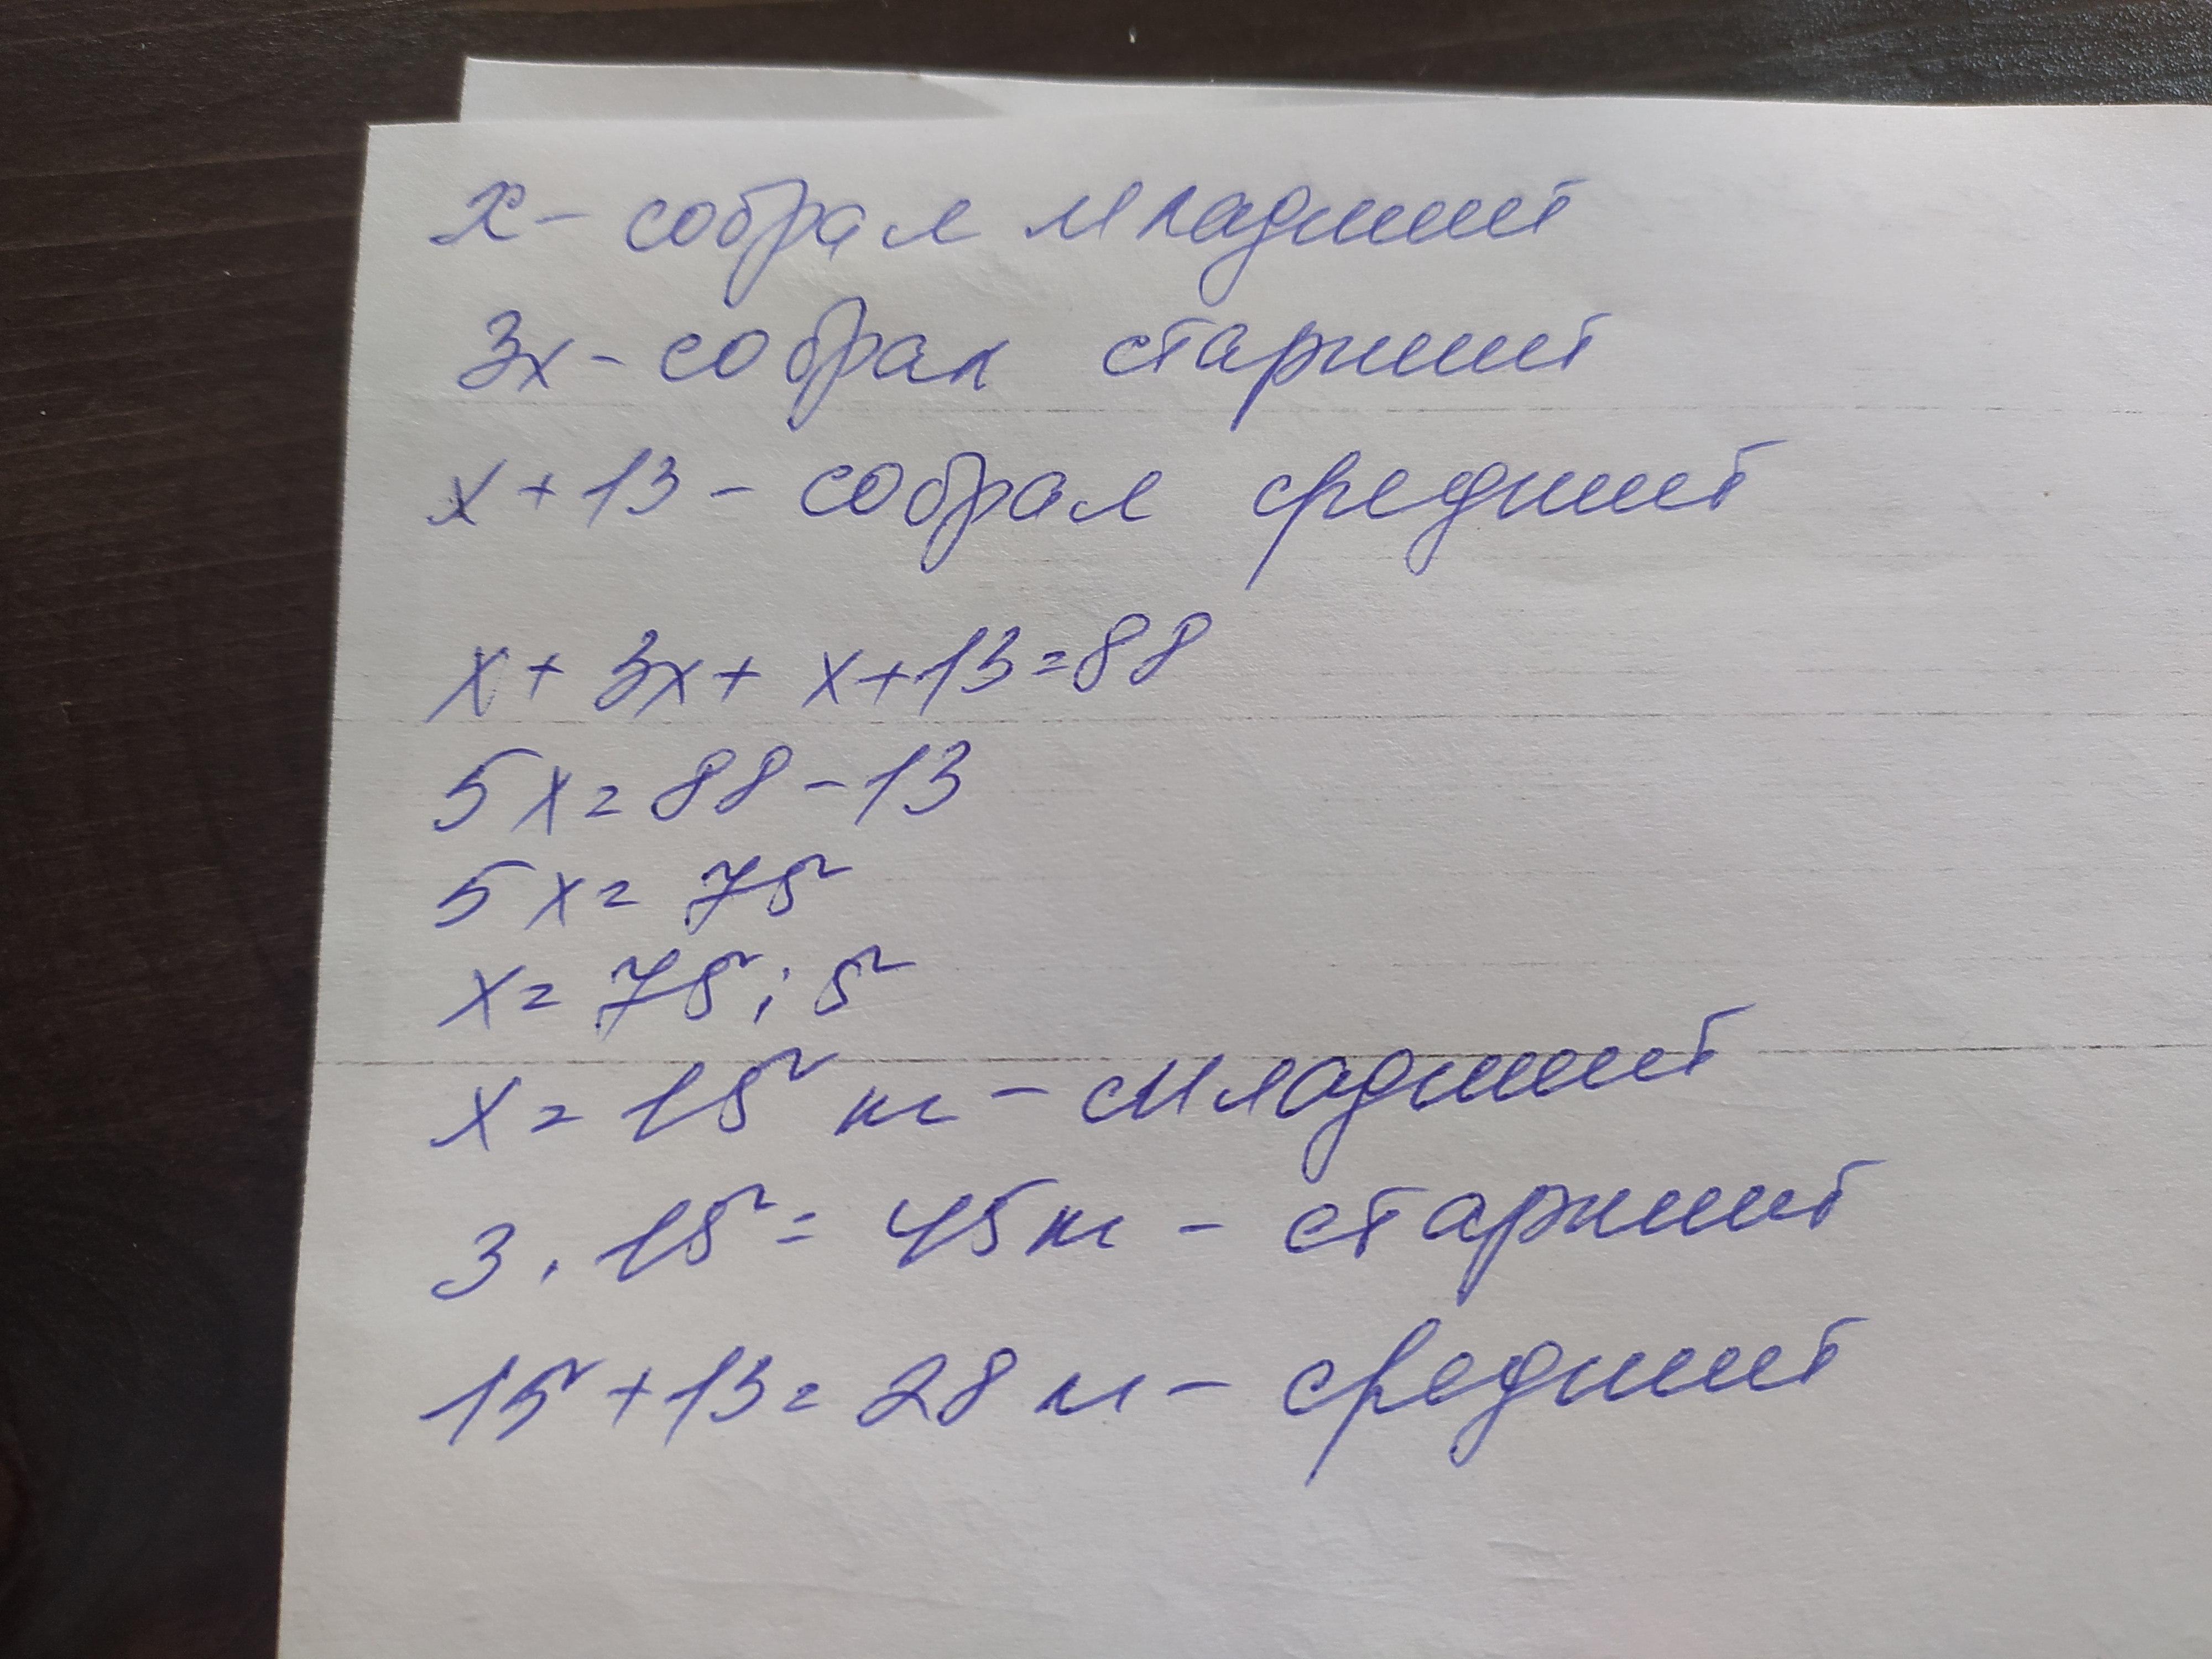 х - собрал младший
3х - собрал старший
х + 13 - собрал средний
х + 3х + х + 13 = 88
5х = 88 - 13
5х = 75
х = 75 : 5
х = 15 кг - младший
3 . 15 = 45 кг - старший
15 + 13 = 28 кг - средний